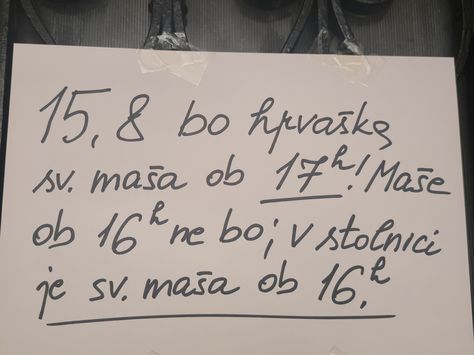 15, 8 bo hrvaška
sv. maša ob 17h! Maše
ob 16h ne bo; v stolnici
je sv. maša ob 16.h